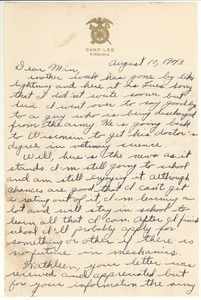 CAMP LEE
VIRGINIA
August 10, 1943
Dear Min,
Another week has gone by like
lightning and here it is. I'm sorry
that I didn't write sooner but
I went over to say goodby
to a guy who is being discharged
from the army. He is going back
to Wisconsin to get his doctor's
degree in vetinary science.
Well, here's the news as it
stands. I'm still going to school
and am still enjoying it although
chances are good that I can't get
a rating out of it. I'm learning a
lot and will stay in school to
learn all that I can. After I finish
school I'll probably apply for
something or other if there is
no future in mechanics.
Kathleen, your letter was
received and appreciated but
for your information the army